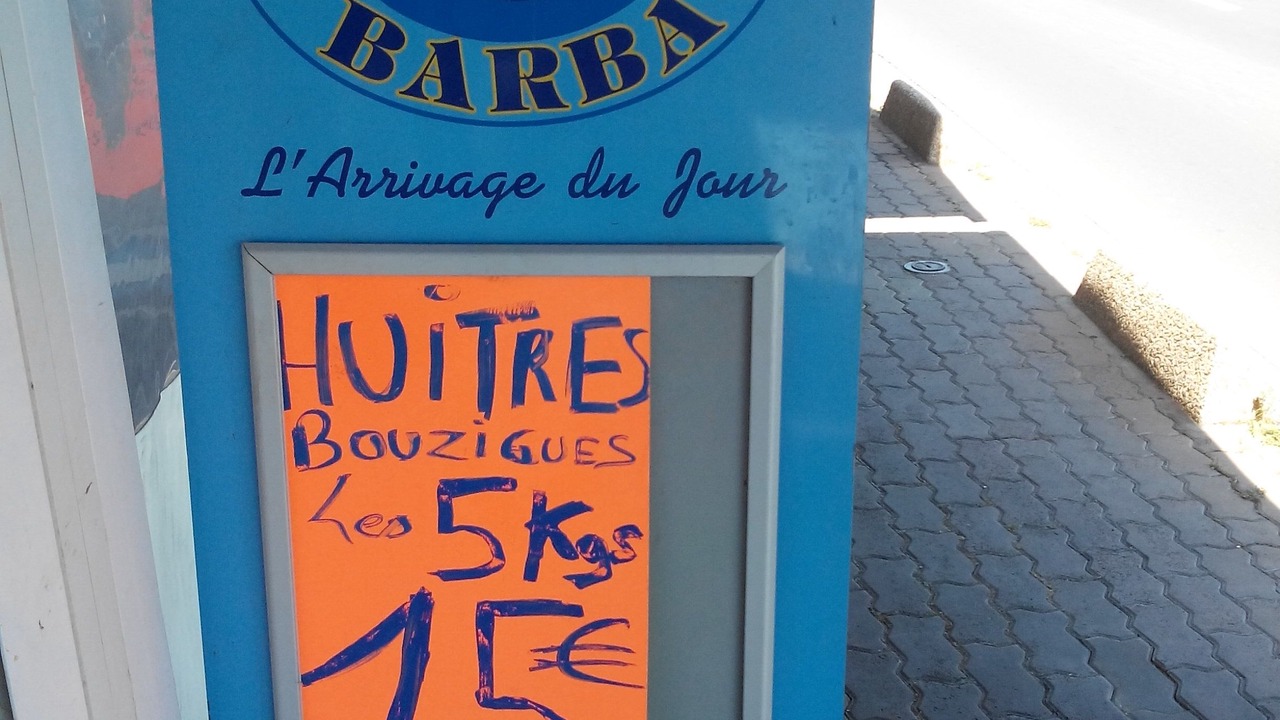 BARBA
L'Arrivage du Jour
HUITRES
BOUZIGUES
Les 5 Kgs
15€